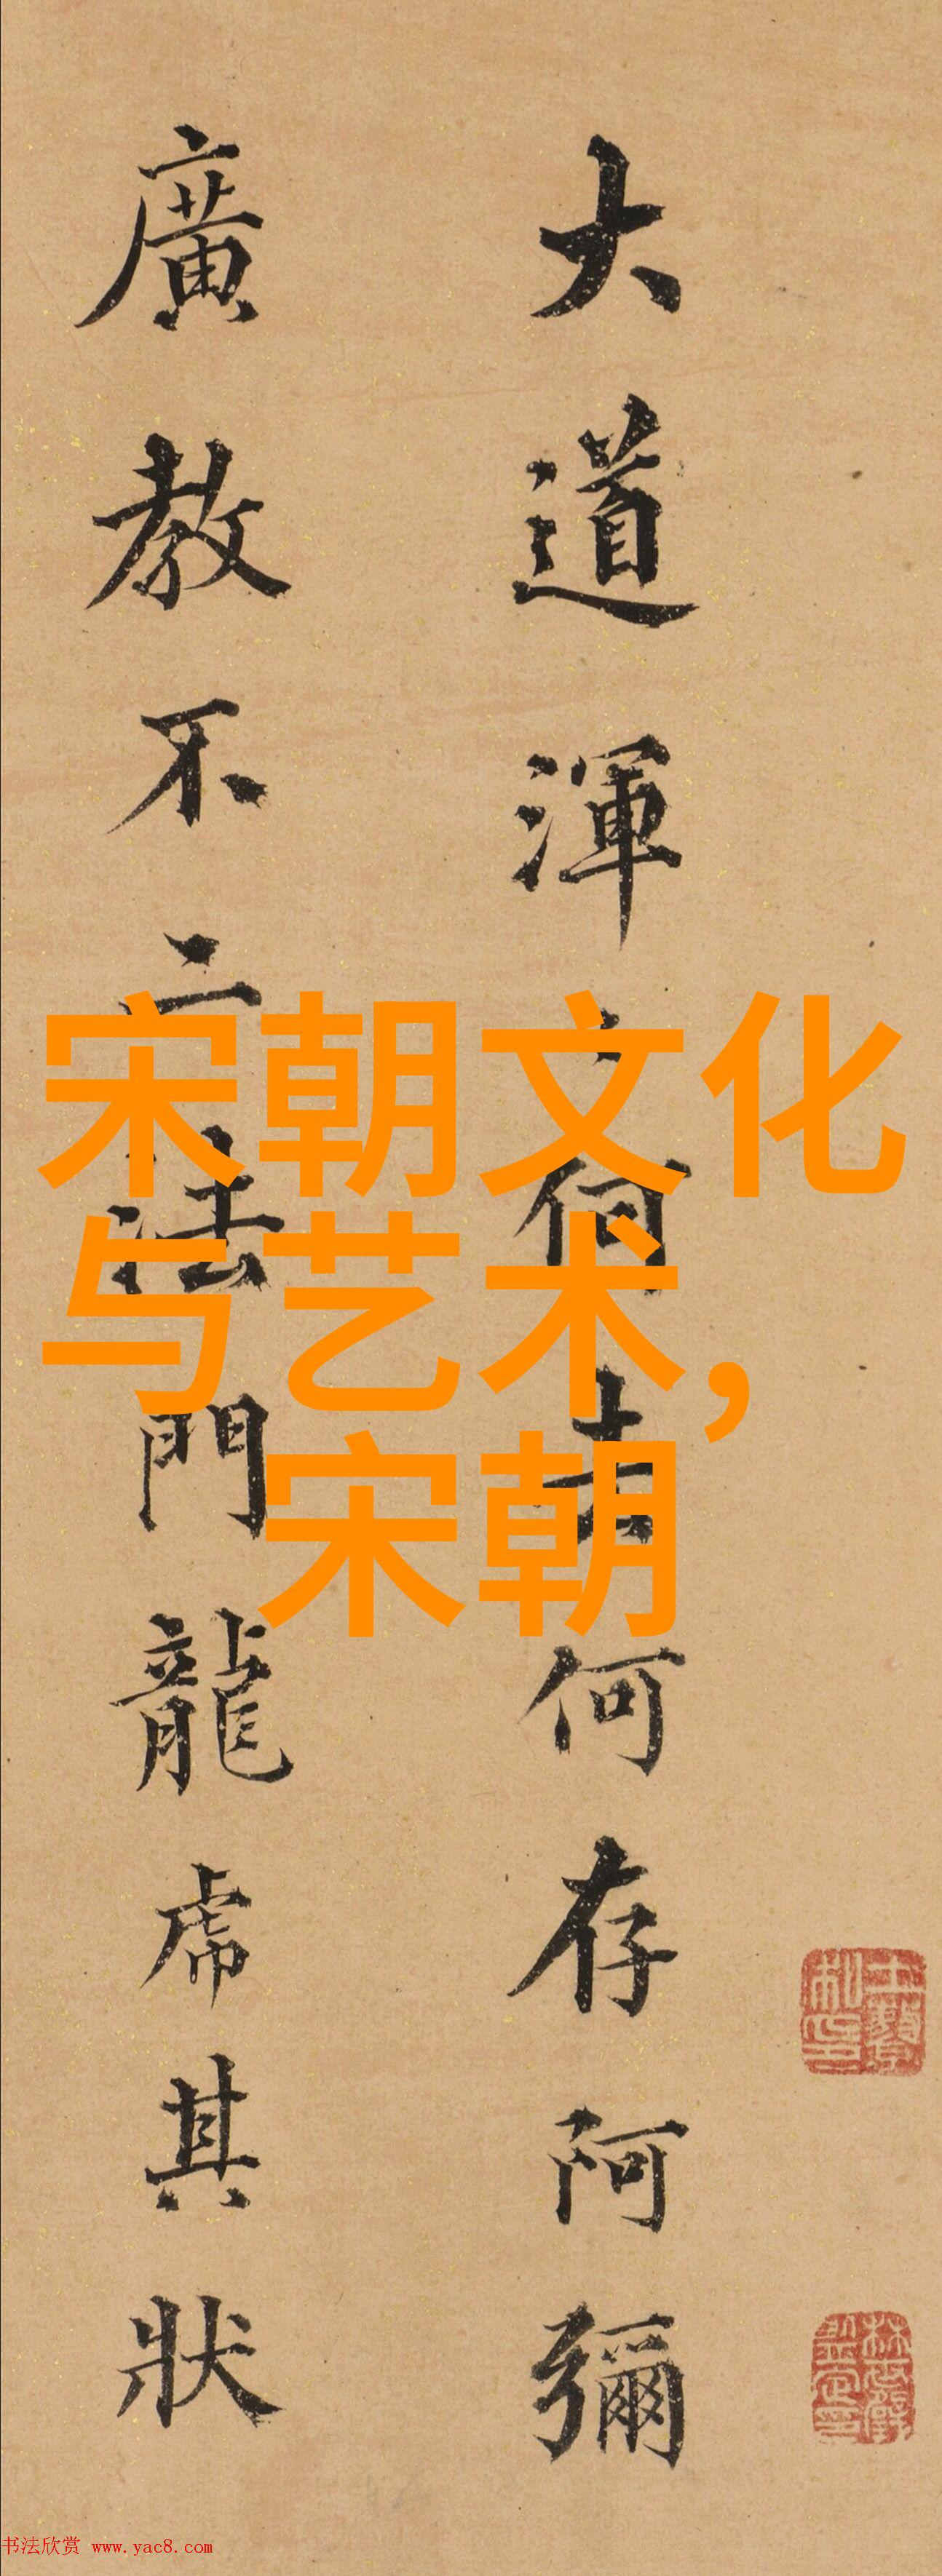 大道渾〻何去何存阿彌
廣教不二法門龍虎其狀
宋朝文化
与艺术，
宋朝
书法欣赏 www.yac8.com